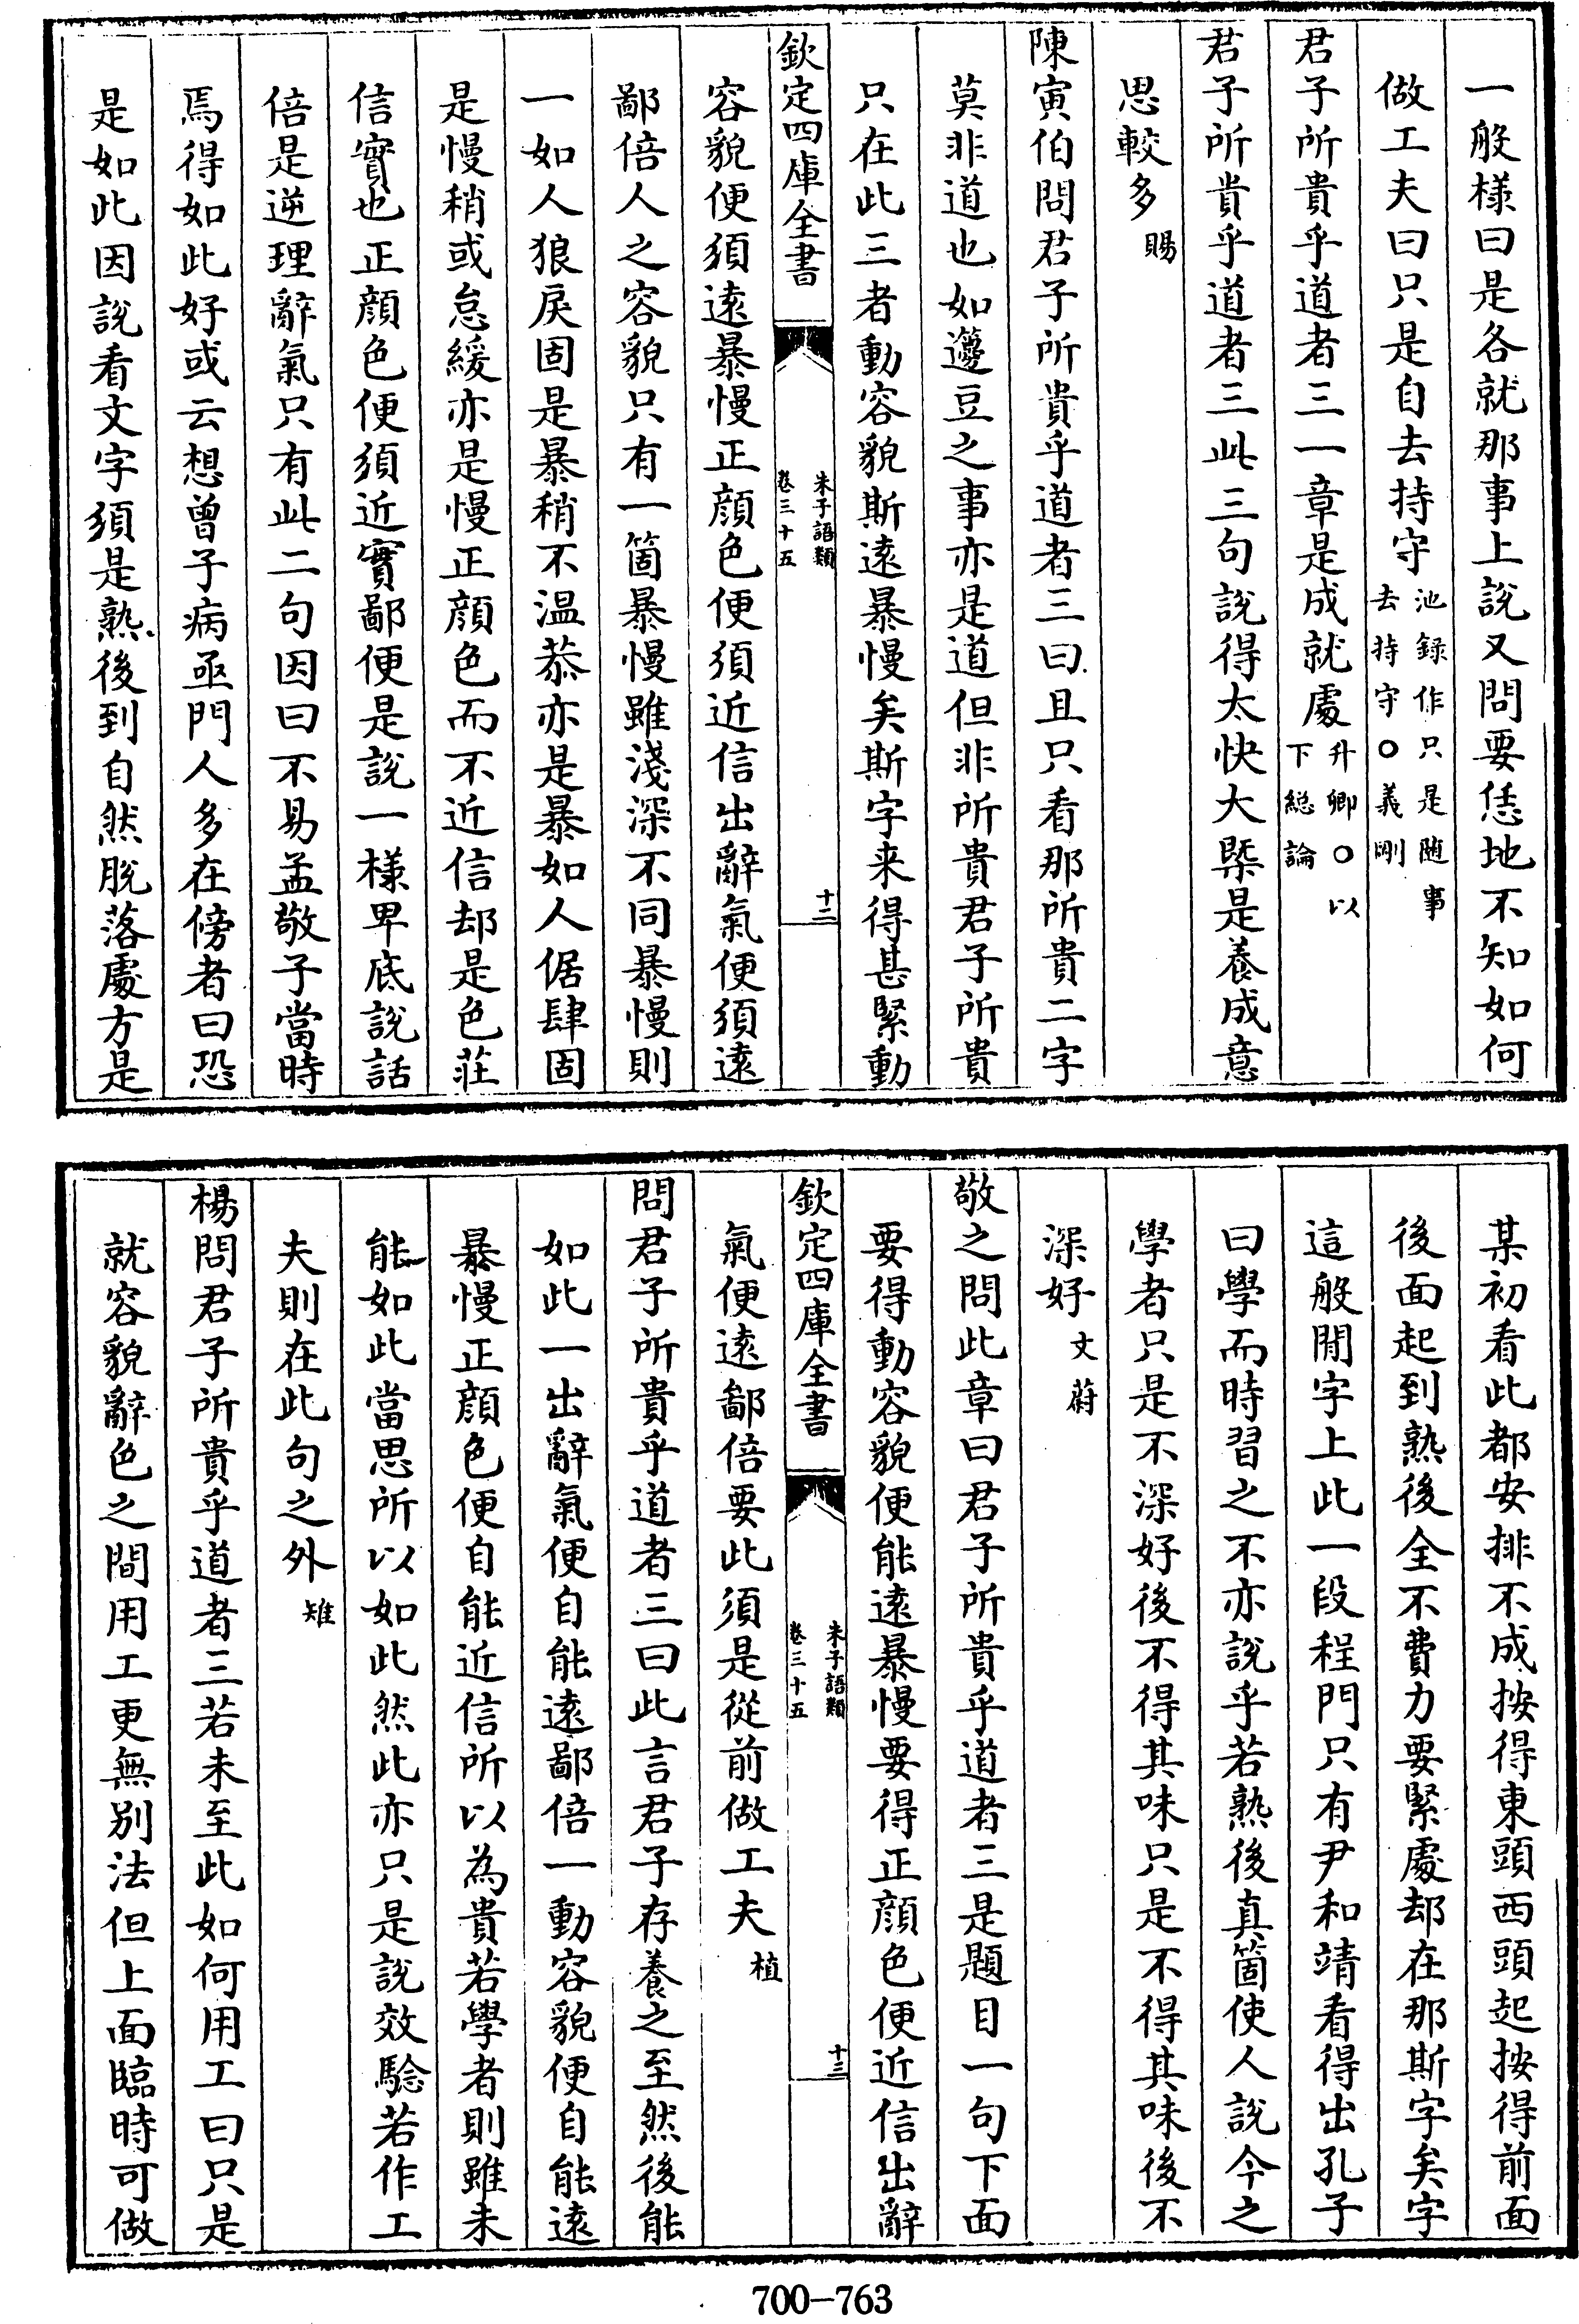 一般様曰是各就那事上説又問要恁地不知如何
做工夫曰只是自去持守池錄作只是随事去持守○義剛
君子所貴乎道者三一章是成就處升卿○以下總論
君子所貴乎道者三此三句説得太快大槩是養成意
思較多賜
陳寅伯問君子所貴乎道者三曰且只看那所貴二字
莫非道也如籩豆之事亦是道但非所貴君子所貴
只在此三者動容貌斯遠暴慢矣斯字来得甚緊動
欽定四庫全書
朱子語類
卷三十五
十二
容貌便須遠暴慢正顔色便須近信出辭氣便須遠
鄙倍人之容貌只有一箇暴慢雖淺深不同暴慢則
一如人狼戾固是暴稍不温恭亦是暴如人倨肆固
是慢稍或怠緩亦是慢正顔色而不近信却是色莊
信實也正顔色便須近實鄙便是説一様卑底説話
倍是逆理辭氣只有此二句因曰不易孟敬子當時
焉得如此好或云想曾子病亟門人多在傍者曰恐
是如此因説看文字須是熟後到自然脱落處方是
某初看此都安排不成按得東頭西頭起按得前面
後面起到熟後全不費力要緊處却在那斯字矣字
這般閒字上此一段程門只有尹和靖看得出孔子
曰學而時習之不亦説乎若熟後真箇使人説今之
學者只是不深好後不得其味只是不得其味後不
深好文蔚
敬之問此章曰君子所貴乎道者三是題目一句下面
要得動容貌便能遠暴慢要得正顔色便近信出辭
欽定四庫全書
朱子語類
卷三十五
十三
氣便遠鄙倍要此須是從前做工夫植
問君子所貴乎道者三曰此言君子存養之至然後能
如此一出辭氣便自能遠鄙倍一動容貌便自能遠
暴慢正顔色便自能近信所以為貴若學者則雖未
能如此當思所以如此然此亦只是説效驗若作工
夫則在此句之外雉
楊問君子所貴乎道者三若未至此如何用工曰只是
就容貌辭色之間用工更無别法但上面臨時可做
700-763